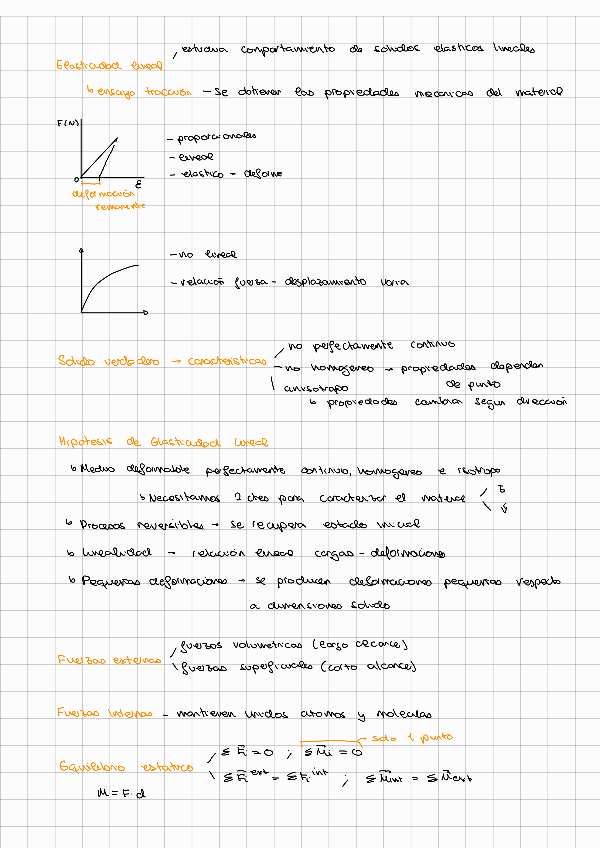 estudia comportamiento de sólidos elásticos lineales
Elasticidad lineal
↳ ensayo tracción – se obtienen las propiedades mecánicas del material
F(N)
– proporcionales
– lineal
– elástico – deforme
0
ε
deformación
remanente
– no lineal
– relación fuerza – desplazamiento varía
no perfectamente continuo
Sólido verdadero → características
– no homogéneo → propiedades dependen
de punto
anisótropo
↳ propiedades cambian según dirección
Hipótesis de Elasticidad Lineal
↳ Medio deformable perfectamente continuo, homogéneo e isótropo
↳ Necesitamos 2 ctes para caracterizar el material
E
ν
↳ Procesos reversibles → se recupera estado inicial
↳ Linealidad → relación lineal cargas – deformaciones
↳ Pequeñas deformaciones → se producen deformaciones pequeñas respecto
a dimensiones sólido
fuerzas volumétricas (largo alcance)
Fuerzas externas
fuerzas superficiales (corto alcance)
Fuerzas internas – mantienen unidos átomos y moléculas
solo 1 punto
Σ Fi = 0 ; Σ Mi = 0
Equilibrio estático
Σ Fi ext = Σ Fi int ; Σ Mint = Σ Mext
M = F · d